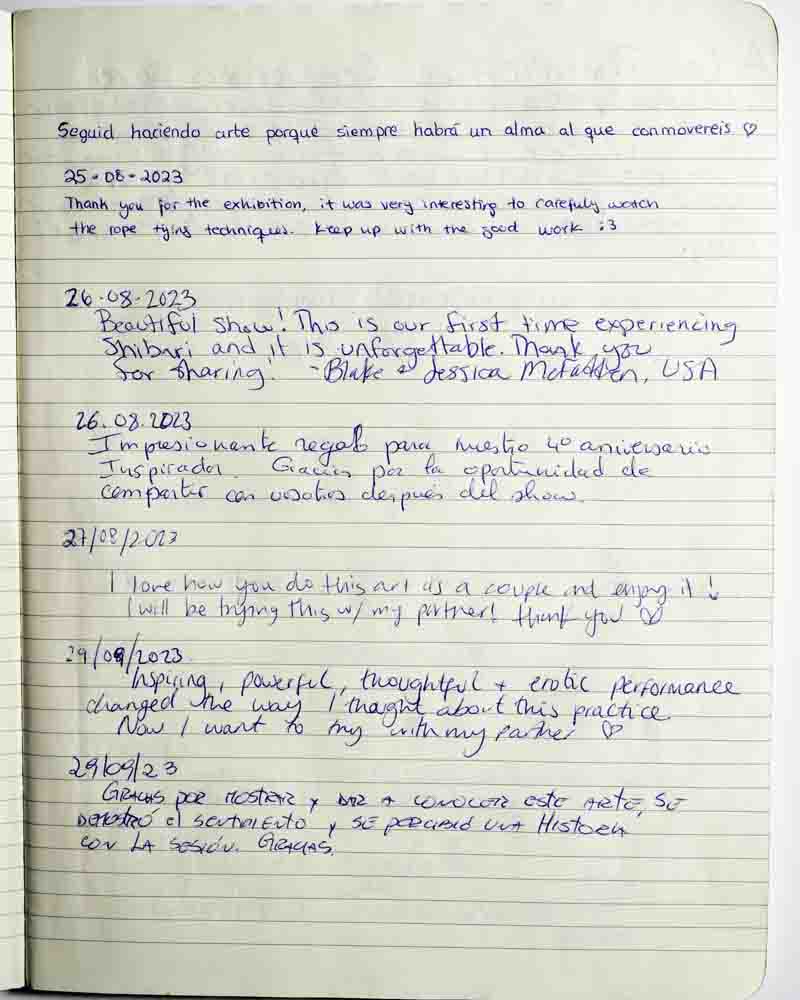 Seguid haciendo arte porque siempre habrá un alma al que conmovereis ♡
25-08-2023
Thank you for the exhibition, it was very interesting to carefuly watch
the rope tying techniques. Keep up with the good work :3
26.08.2023
Beautiful show! This is our first time experiencing
Shibari and it is unforgettable. Thank you
for sharing! - Blake & Jessica McFadden, USA
26.08.2023
Impresionante regalo para nuestro 40 aniversario
Inspirador. Gracias por la oportunidad de
compartir con vosotros después del show.
27/08/2023
I love how you do this art as a couple and enjoy it!
I will be trying this w/ my partner! thank you ♡
29/09/2023
Inspiring, powerful, thoughtful + erotic performance
changed the way I thought about this practice.
Now I want to try with my partner ♡
29/09/23
GRACIAS POR MOSTRAR Y DAR A CONOCER ESTE ARTE, SE
DEMOSTRÓ EL SENTIMIENTO Y SE PERCIBIÓ UNA HISTORIA
CON LA SESIÓN. GRACIAS.